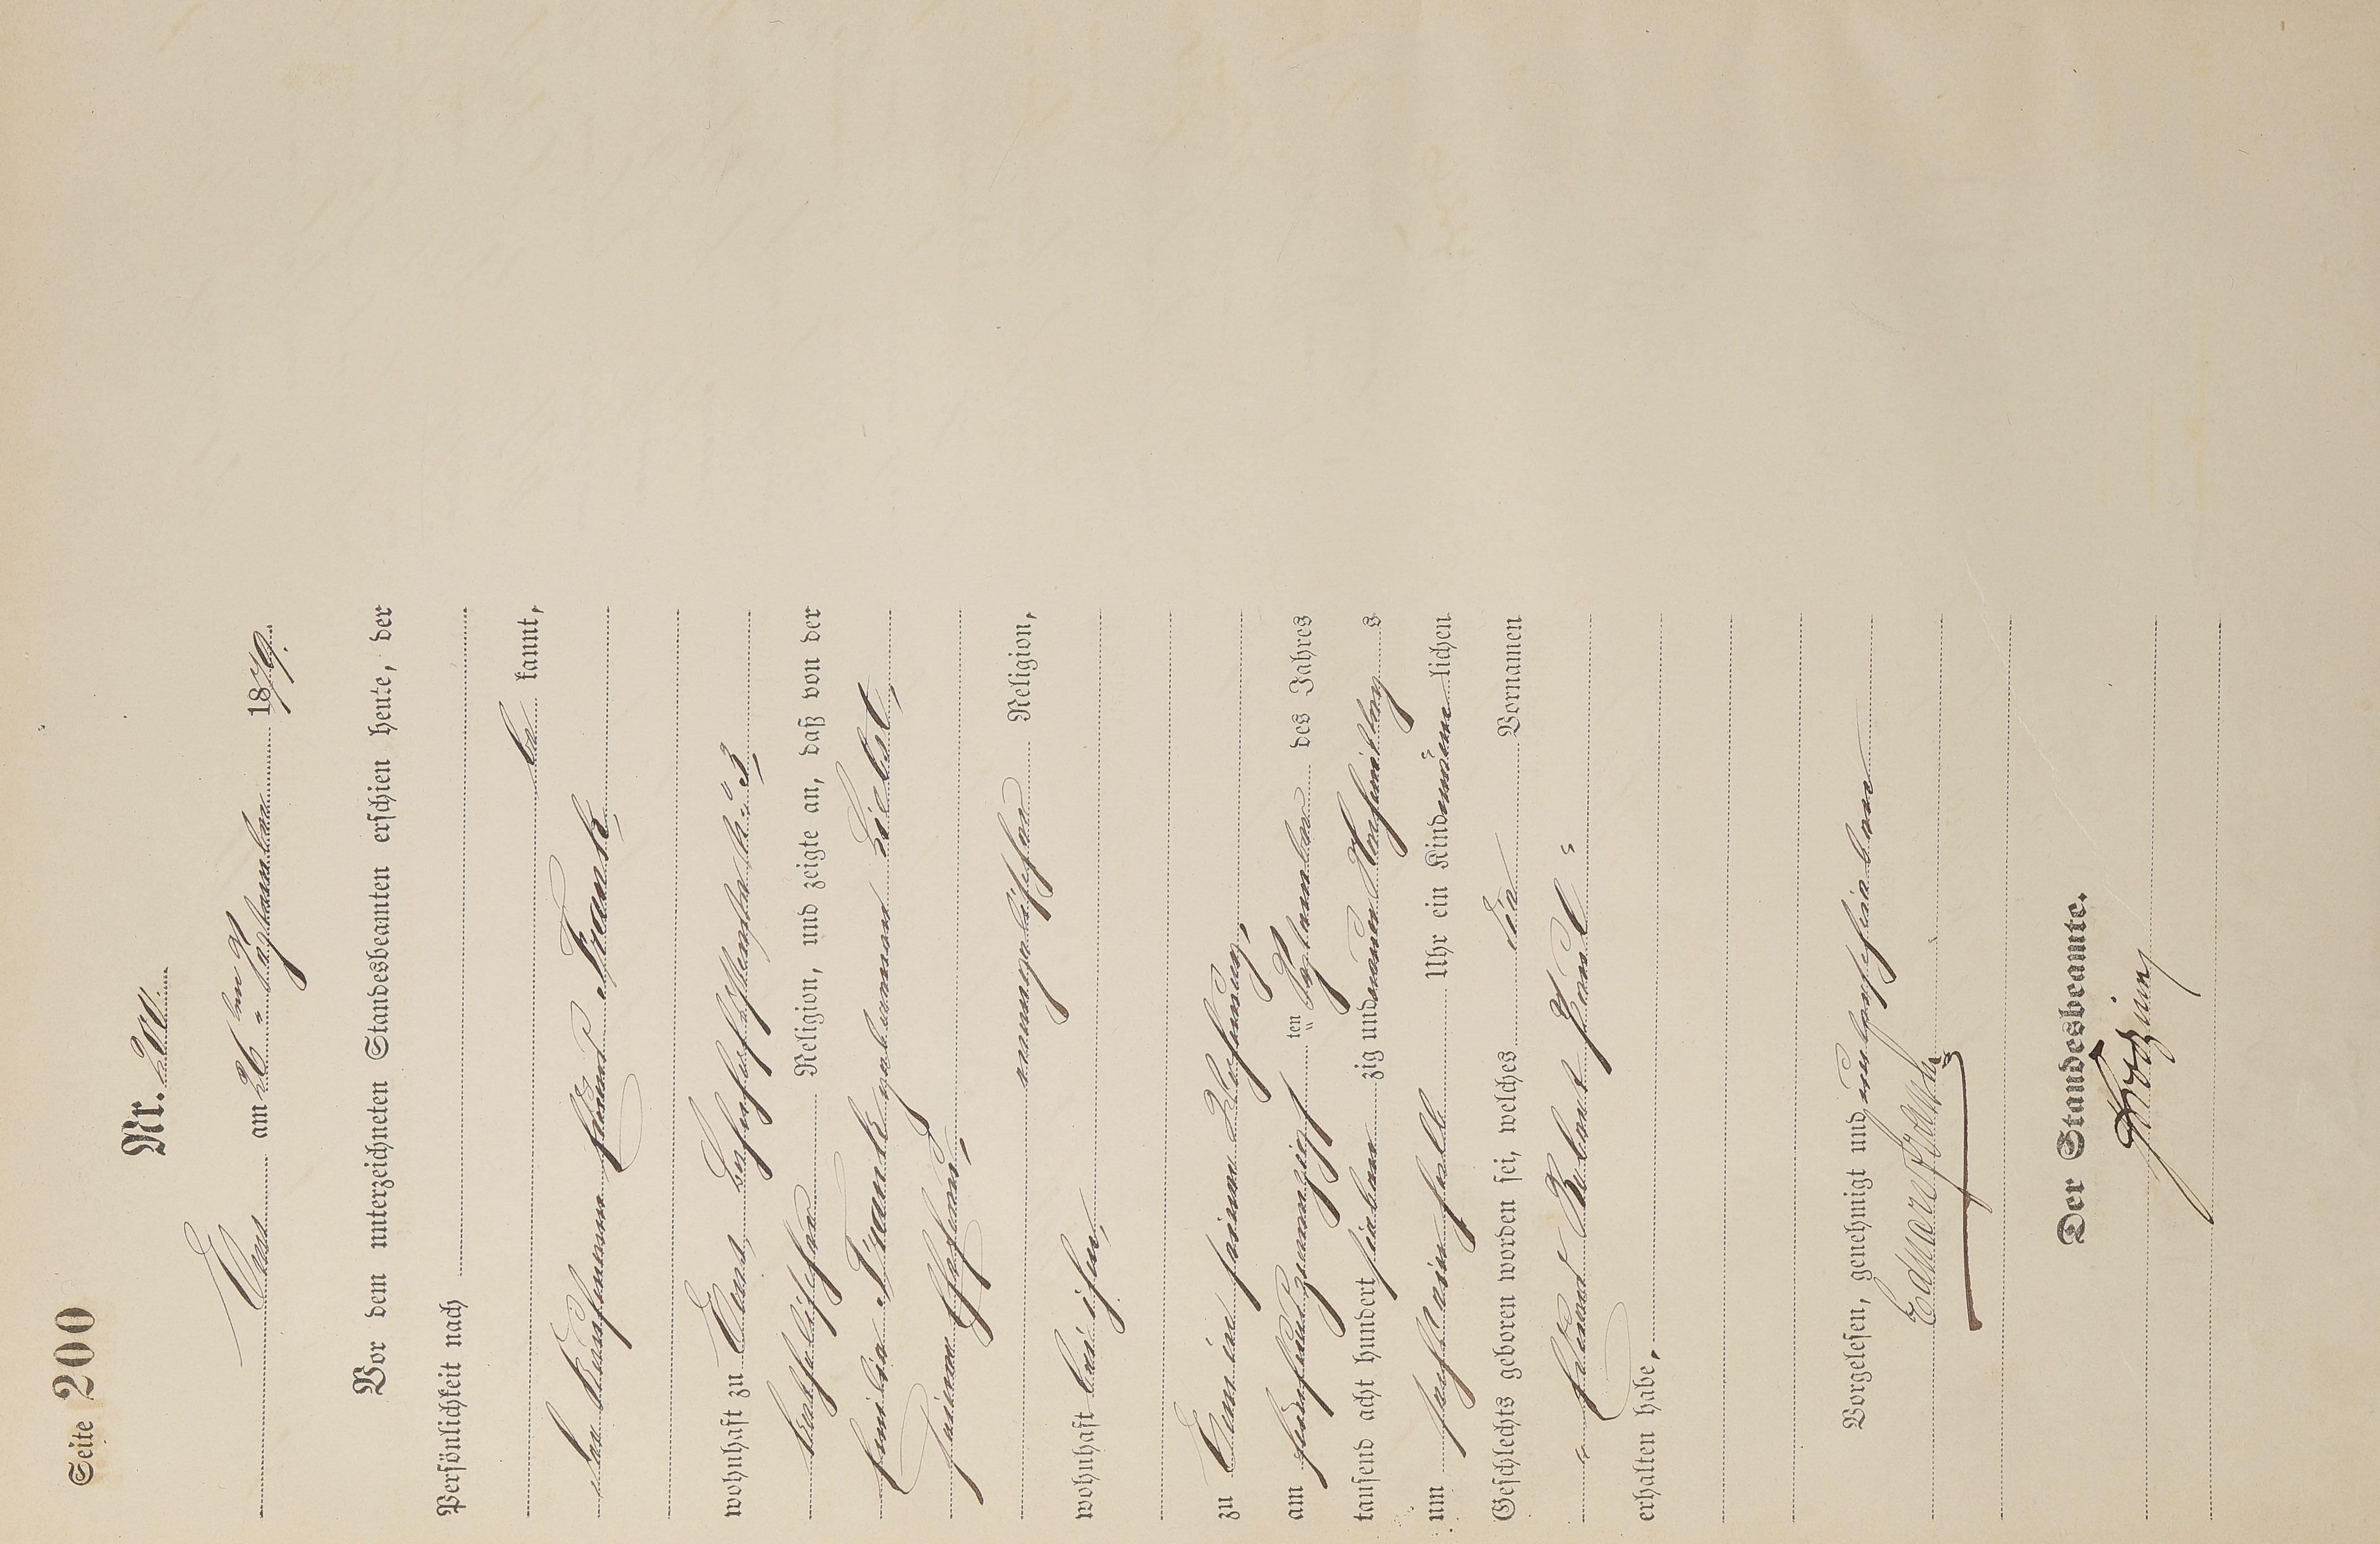 Seite 200
Nr. 200.
Ems am 26 ten September 1879.
Vor dem unterzeichneten Standesbeamten erschien heute, der
Persönlichkeit nach
be kannt,
der Kaufmann Eduard Franck,
wohnhaft zu Ems, 3
katholischer Religion, und zeigte an, daß von der
Emilie Franck geborenen Liebst,
seiner Ehefrau,
evangelischer Religion,
wohnhaft bei ihm,
zu Ems in seiner Wohnung,
am fünfundzwanzigst ten September des Jahres
tausend acht hundert sieben zig und neun Nachmittags
um Uhr ein Kind männ lichen
Geschlechts geboren worden sei, welches die Vornamen
Eduard Robert Paul
erhalten habe,
Vorgelesen, genehmigt und unterschrieben
Eduard Franck
Der Standesbeamte.